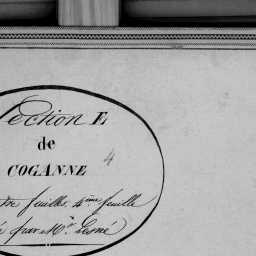 Section E
de
COGANNE
4
feuilles, 4ème feuille
par Mr.